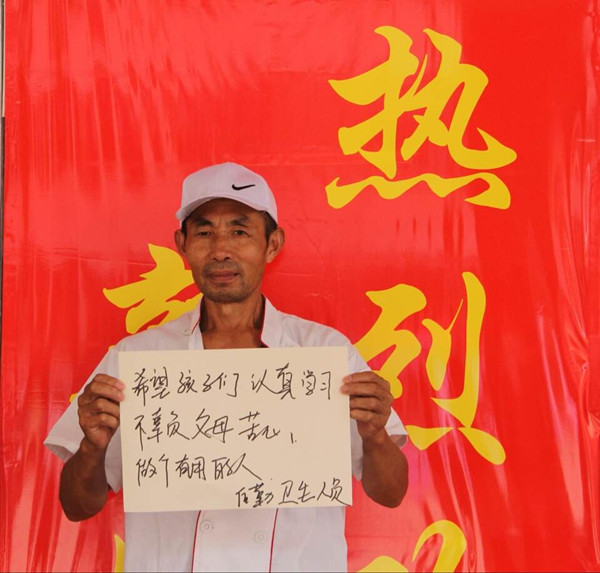 热烈
希望孩子们认真学习
不辜负父母苦心，
做个有用的人
后勤卫生人员